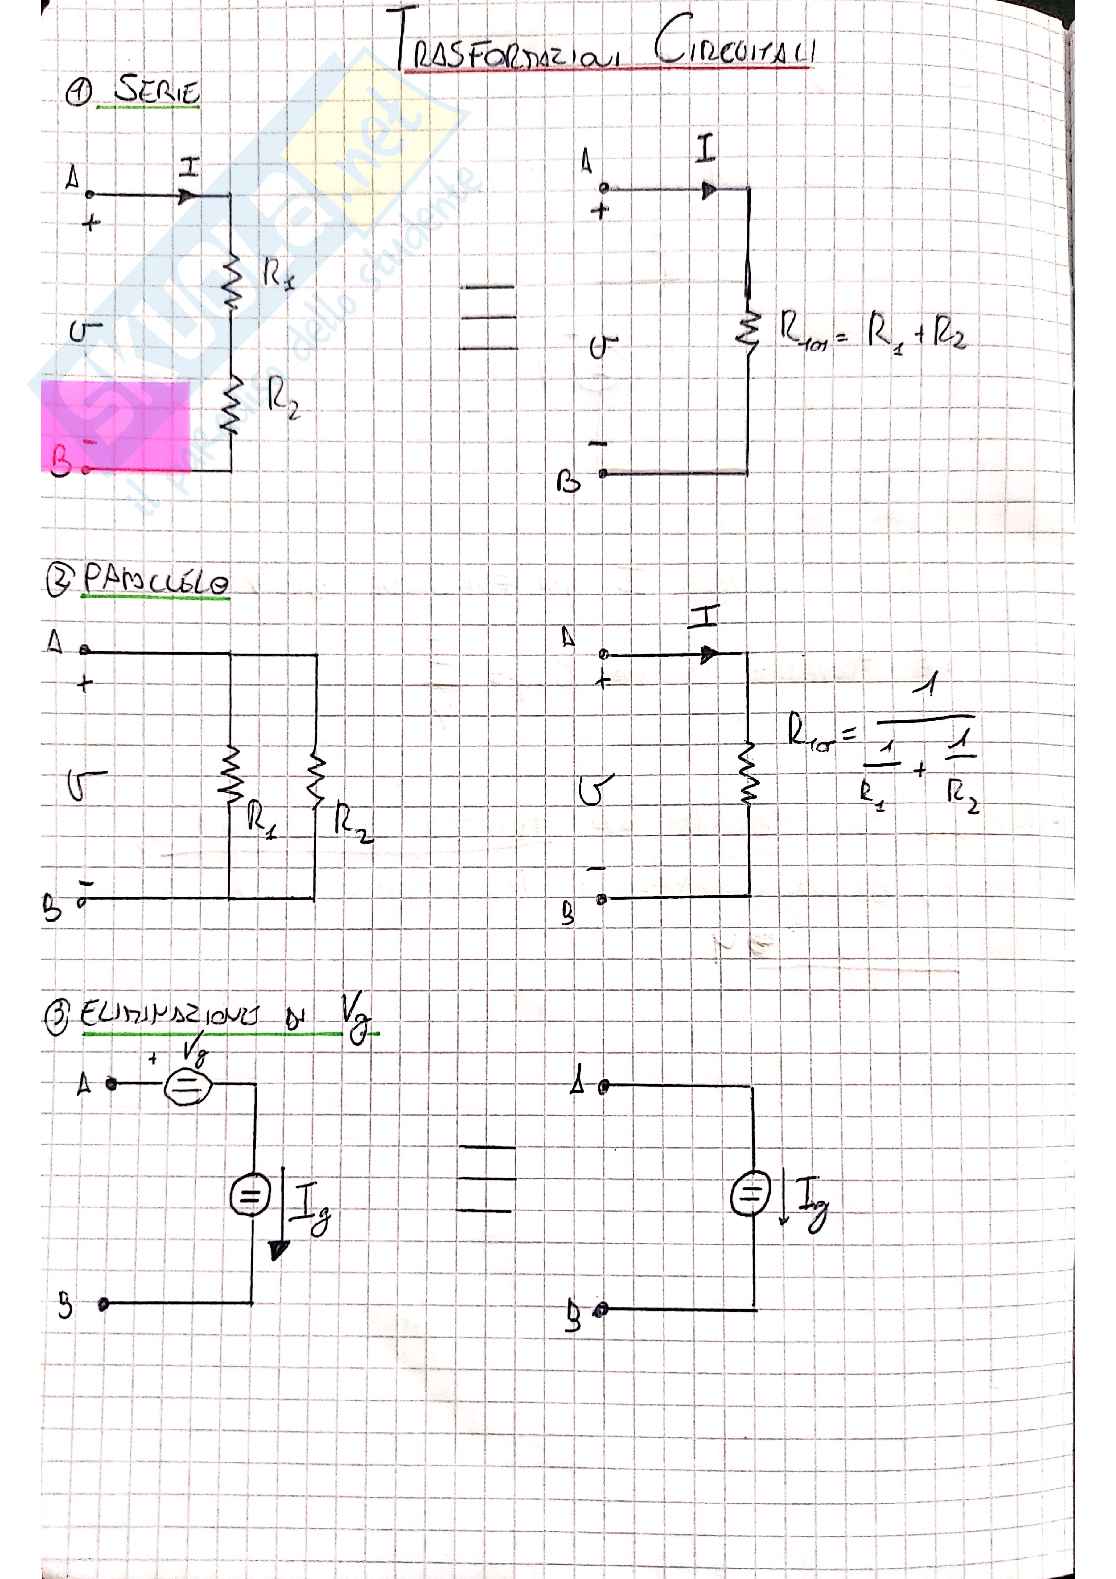 TRASFORMAZIONI CIRCUITALI
① SERIE
A I
+
R1
V
R2
-
B
A I
+
V
RTOT = R1 + R2
-
B
② PARALLELO
A
+
V
R1 R2
-
B
A I
+
V
RTOT = 1 / (1/R1 + 1/R2)
-
B
③ ELIMINAZIONE DI Vg
+ Vg
A
Ig
B
A
Ig
B
SKUOLA.net
il paradiso dello studente